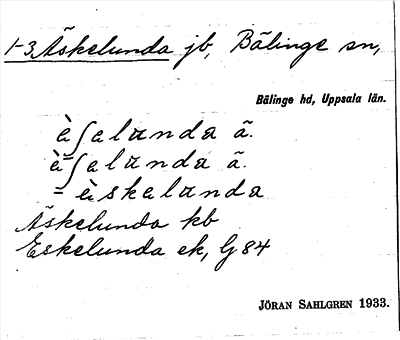 1-3 Äskelunda jb, Bälinge sn,
Bälinge hd, Uppsala län.
ὲʃelanda ã.
ὲʃalanda ã.
= ὲskelanda
Äskelunda kb
Eskelunda ek, G 84
JÖRAN SAHLGREN 1933.